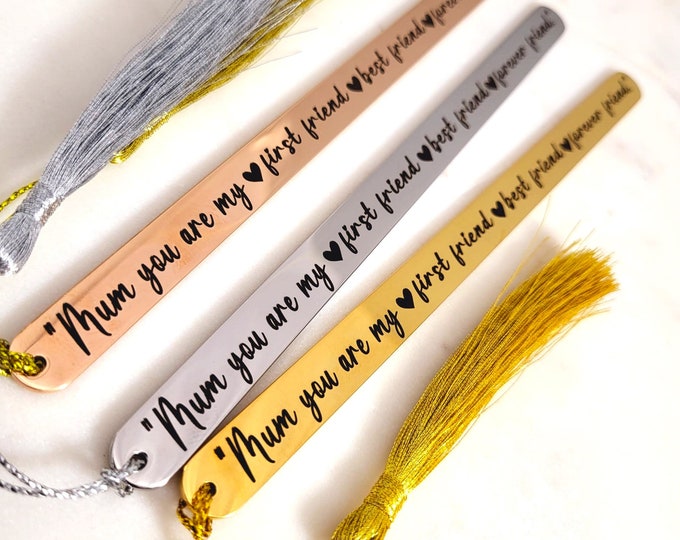 "Mum you are my ♥ first friend ♥ best friend ♥ forever
"Mum you are my ♥ first friend ♥ best friend ♥ forever friend."
"Mum you are my ♥ first friend ♥ best friend ♥ forever friend."